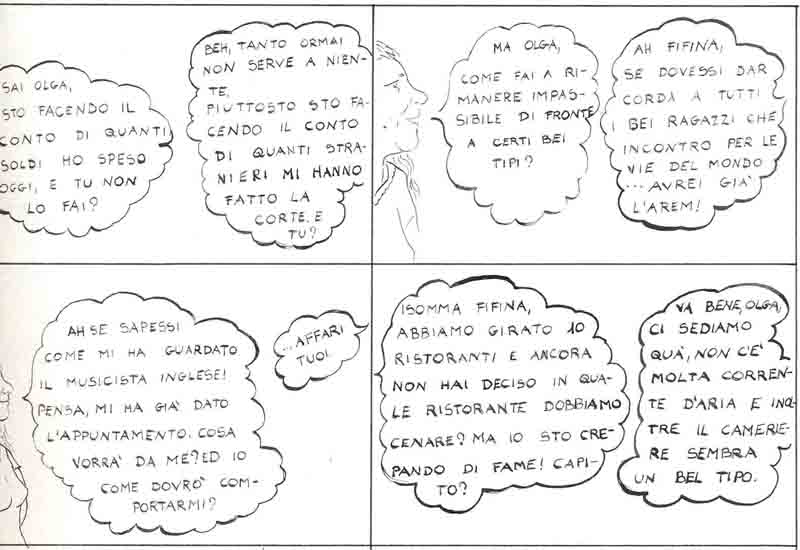 SAI OLGA,
STO FACENDO IL
CONTO DI QUANTI
SOLDI HO SPESO
OGGI, E TU NON
LO FAI?
BEH, TANTO ORMAI
NON SERVE A NIEN-
TE,
PIUTTOSTO STO FA-
CENDO IL CONTO
DI QUANTI STRA-
NIERI MI HANNO
FATTO LA
CORTE. E
TU?
MA OLGA,
COME FAI A RI-
MANERE IMPAS-
SIBILE DI FRONTE
A CERTI BEI
TIPI?
AH FIFINA,
SE DOVESSI DAR
CORDA A TUTTI
I BEI RAGAZZI CHE
INCONTRO PER LE
VIE DEL MONDO
...AVREI GIÀ
L'AREM!
AH SE SAPESSI
COME MI HA GUARDATO
IL MUSICISTA INGLESE!
PENSA, MI HA GIÀ DATO
L'APPUNTAMENTO. COSA
VORRÀ DA ME? ED IO
COME DOVRÒ COM-
PORTARMI?
...AFFARI
TUOI.
ISOMMA FIFINA,
ABBIAMO GIRATO 10
RISTORANTI E ANCORA
NON HAI DECISO IN QUA-
LE RISTORANTE DOBBIAMO
CENARE? MA IO STO CRE-
PANDO DI FAME! CAPI-
TO?
VA BENE, OLGA,
CI SEDIAMO
QUÀ, NON C'È
MOLTA CORREN-
TE D'ARIA E INOL
TRE IL CAMERIE-
RE SEMBRA
UN BEL TIPO.